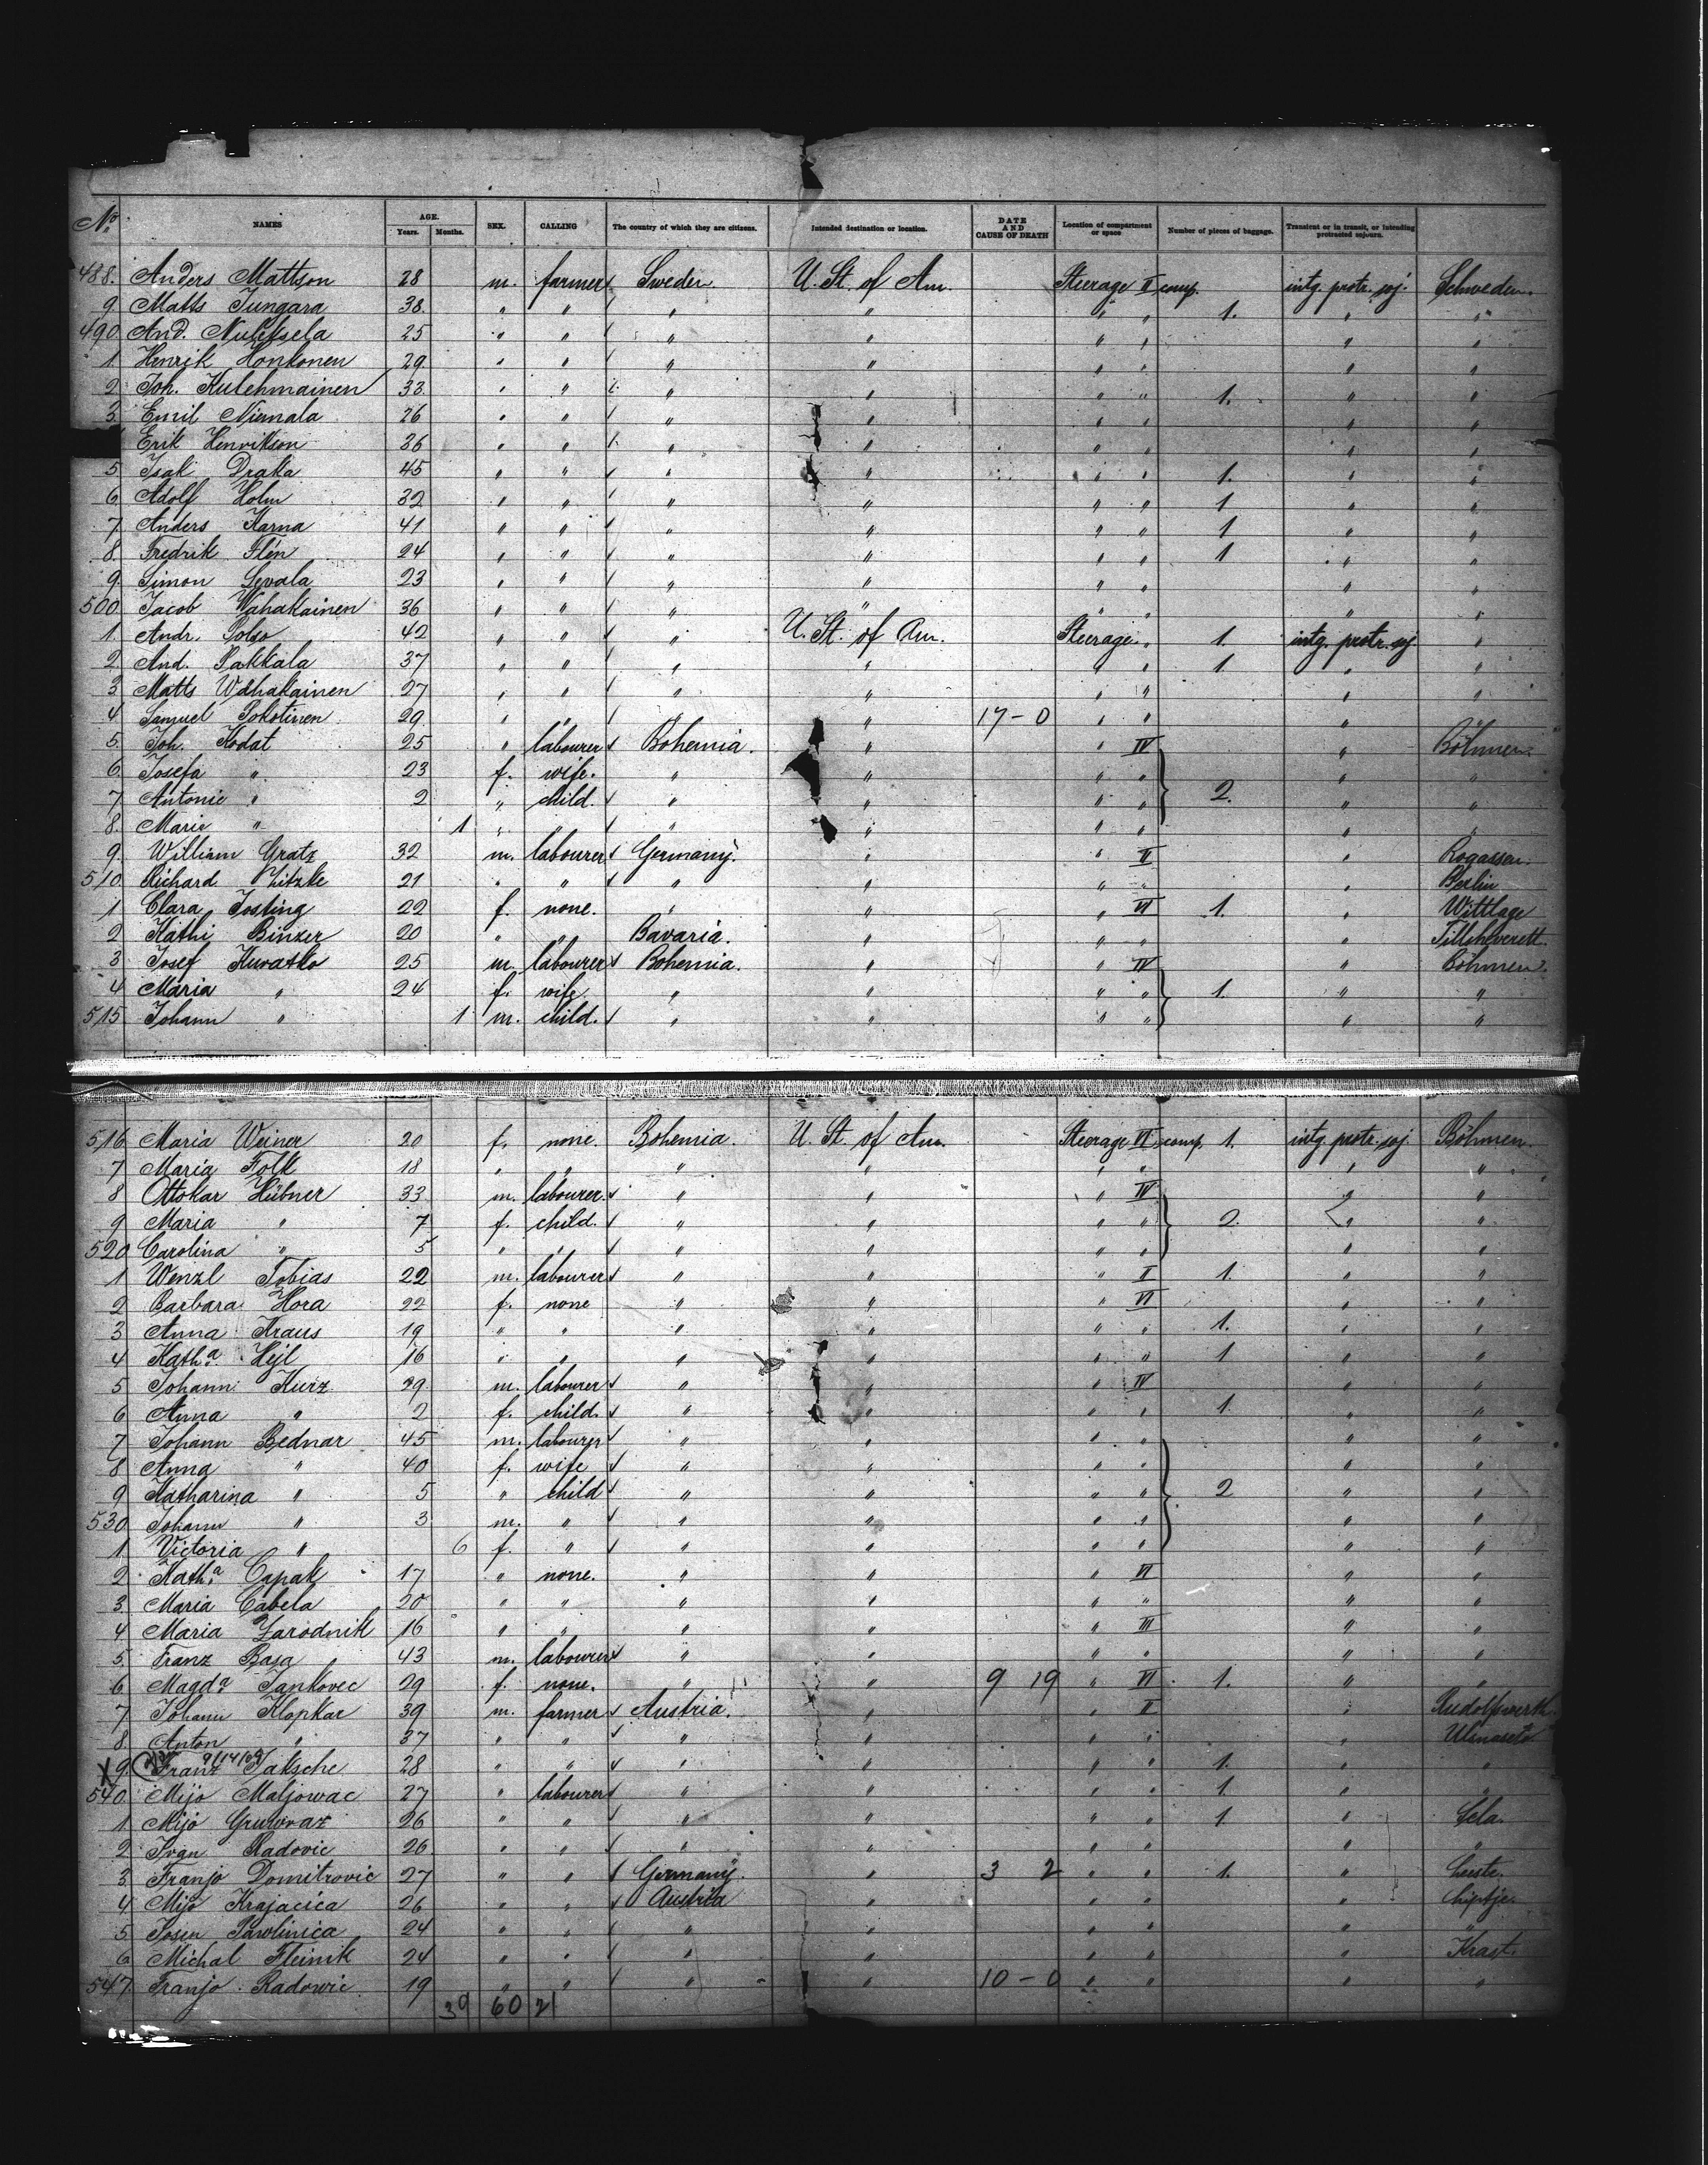 No. NAMES AGE. Years. Months. SEX. CALLING The country of which they are citizens. Intended destination or location. DATE AND CAUSE OF DEATH Location of compartment or space Number of pieces of baggage. Transient or in transit, or intending protracted sojourn.
488. Anders Mattson 28 m. farmer Sweden. U. St. of Am. Steerage II comp. intg. protr. soj. Schweden.
9 Matts Jungara 38. " " " " " " 1. " "
490. And. 25 " " " " " " " "
1. Henrik Honkonen 29. " " " " " " " "
2. Joh. Kulehmainen 33. " " " " " " 1. " "
3 Emil Niemala 26 " " " " " " " "
Erik Henrikson 36 " " " " " " " "
5. Isak Draka 45 " " " " " " 1. " "
6 Adolf Holm 32 " " " " " " 1 " "
7 Anders Karna 41 " " " " " " 1 " "
8. Fredrik Flén 24 " " " " " " 1 " "
9. Simon Levala 23 " " " " " " " "
500. Jacob Wahakainen 36 " " " " " " " "
1. Andr. Polso 42 " " " U. St. of Am. Steerage " 1. intg. protr. soj. "
2. And. Pakkala 37 " " " " " " 1. " "
3. Matts Wahakainen 27 " " " " " " " "
4 Samuel Pokstinen 29 " " " " 17-0 " " " "
5. Joh. Kodat 25 " labourer Bohemia. " " IV " Böhmen.
6. Josefa " 23 f. wife. " " " " " "
7 Antonie " 2 " child. " " " " 2. " "
8. Marie " 1 " " " " " " " "
9. William Gratz 32 m. labourer Germany. " " II " Rogassen.
510. Richard Zitzke 21 " " " " " " " Berlin
1 Clara Josting 22 f. none. " " " VI 1. " Wittlage
2 Kathi Binzer 20 " " Bavaria. " " " "
3 Josef Kwasko 25 m. labourer Bohemia. " " IV " Böhmen.
4 Maria " 24 f. wife. " " " " 1. " "
515 Johann " 1 m. child. " " " " " "
516 Maria Weiner 20 f. none. Bohemia. U. St. of Am. Steerage VI comp. 1. intg. protr. soj. Böhmen.
7 Maria Folk 18 " " " " " " " "
8 Ottokar Hübner 33 m. labourer. " " " IV " "
9 Maria " 7 f. child. " " " " 2. " "
520 Carolina " 5 " " " " " " " "
1 Wenzl Tobias 22 m. labourer " " " II 1. " "
2 Barbara Hora 22 f. none " " " VI " "
3 Anna Kraus 19 " " " " " " 1. " "
4 Katha. Hejl 16 " " " " " " 1 " "
5 Johann Kurz 29. m. labourer " " " IV " "
6 Anna " 2 f. child. " " " " 1. " "
7 Johann Bednar 45 m. labourer " " " " " "
8 Anna " 40 f. wife " " " " " "
9 Katharina " 5 " child " " " " 2 " "
530 Johann " 3 m. " " " " " " "
1 Victoria " 6 f. " " " " " " "
2 Katha. Capak 17 " none. " " " VI " "
3. Maria Cabela 20 " " " " " " " "
4 Maria Zarodnik 16 " " " " " III " "
5. Franz Basa 43 m. labourer " " " " "
6 Magda. Jankovec 29 f. none. " " 9 19 " VI 1. " "
7. Johann Klopkar 39 m. farmer Austria. " " II " Rudolfswerth.
8. Anton " 37 " " " " " " "
X 9. 9/14/09 Franz Jaksche 28 " " " " " " 1. " "
540. Mijo Maljowac 27 " labourer " " " " 1. " "
1 Mijo 26 " " " " " " 1 " Cela.
2 Ivan Radovic 26. " " " " " " " "
3. Franjo Domitrovic 27 " " Germany. " 3 2 " " 1. "
4 Mijo Krajacica 26 " " Austria " " " "
5 Josen Pawlinica 24 " " " " " " " "
6 Michal Fleinik 24 " " " " " " " Krast.
547. Franjo Radowic. 19 " " " " 10-0 " " " "
39 60 21